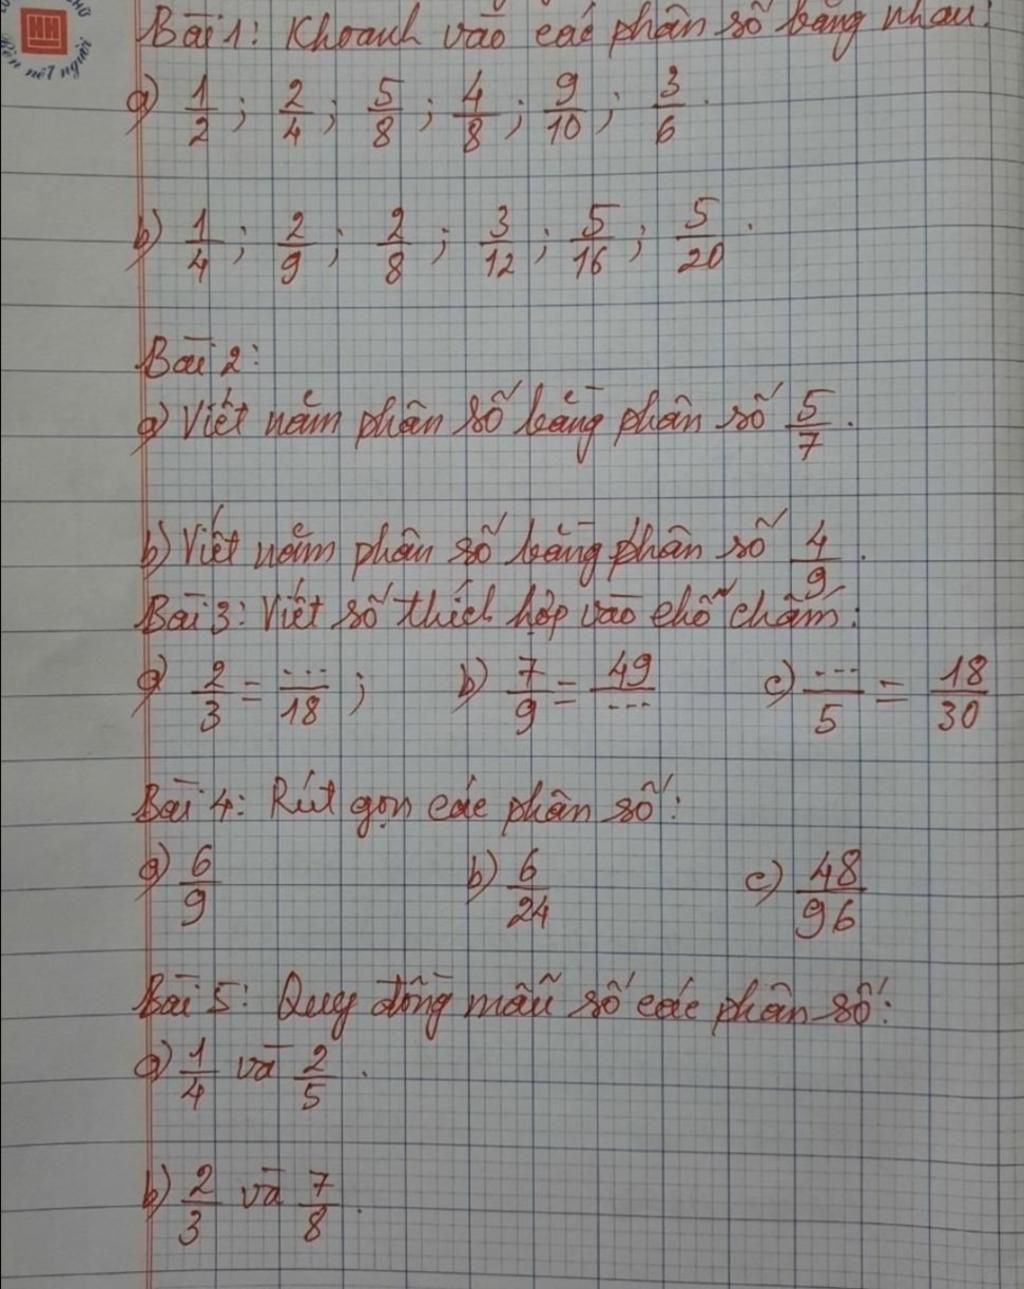 Bài 1: Khoanh vào các phân số bằng nhau:
a) 1/2 ; 2/4 ; 5/8 ; 4/8 ; 9/10 ; 3/6 .
b) 1/4 ; 2/9 ; 2/8 ; 3/12 ; 5/16 ; 5/20 .
Bài 2:
a) Viết năm phân số bằng phân số 5/7 .
b) Viết năm phân số bằng phân số 4/9 .
Bài 3: Viết số thích hợp vào chỗ chấm:
a) 2/3 = .../18 ; b) 7/9 = 49/... c) .../5 = 18/30
Bài 4: Rút gọn các phân số:
a) 6/9 b) 6/24 c) 48/96
Bài 5: Quy đồng mẫu số các phân số:
a) 1/4 và 2/5 .
b) 2/3 và 7/8 .